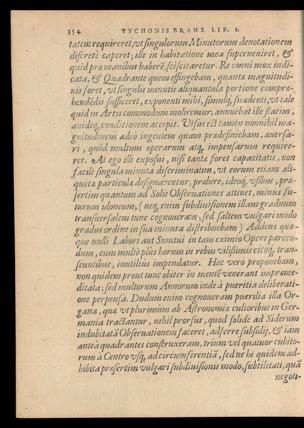 354 TYCHONIS BRAHE LIB. I.
tatem requireret, ut singulorum Minutorum denotationem
discretè caperet; ille in habitatione mea superueniret, &
quid præ manibus haberē sciscitaretur. Re omni mox indi-
cata, & Quadrante quem effingebam, quanta magnitudi-
nis foret, ut singulis minutis aliquantula portione compra-
hendēdis sufficeret, exponenti mihi, simulq́; suadenti, ut tale
quid in Artis commodum moliremur, annuebat ille statim,
auideq́; conditionem accepit. Visus est tamen nonnihil ma-
gnitudinem adeò ingentem quam prædefiniebam, auersa-
ri, quòd multum operarum atq; impensarum require-
ret. At ego illi exposui, nisi tanta foret capacitatis, non
facile singula minuta discriminatim, ut eorum etiam ali-
quota particula designarentur, prodere, ideoq́; usibus, præ-
sertim quantum ad Solis Obseruationes attinet, minus fu-
turum idoneum, (neq, enim subdiuisionem illam graduum
transuersalem tunc cognoueram, sed saltem vulgari modo
gradus ordine in sua minuta distribuebam) Addens quo-
que nulli Labori aut Sumtui in tam eximio Opere parcen-
dum, cum multo plùs horum in rebus vilissimis citoq́; tran-
seuntibus, inutilius impendatur. Hæc verò proponebam,
non quidem prout tunc obiter in mentē venerant impræme-
ditata; sed multorum Annorum inde à pueritia deliberati-
one perpensa. Dudum enim cognoueram puerilia illa Or-
gana, quæ ut plurimum ab Astronomiæ cultoribus in Ger-
mania tractantur, nihil prorsus, quod solidè ad Siderum
indubitatā Obseruationem faceret, adferre subsidij, & iam
anteà quadrantes construxeram, trium vel quatuor cubito-
rum à Centro usq́; ad circumferentiā, sed ne hi quidem ad-
hibita præsertim vulgari subdiuisionis modo, subtilitati, quā
negoti-